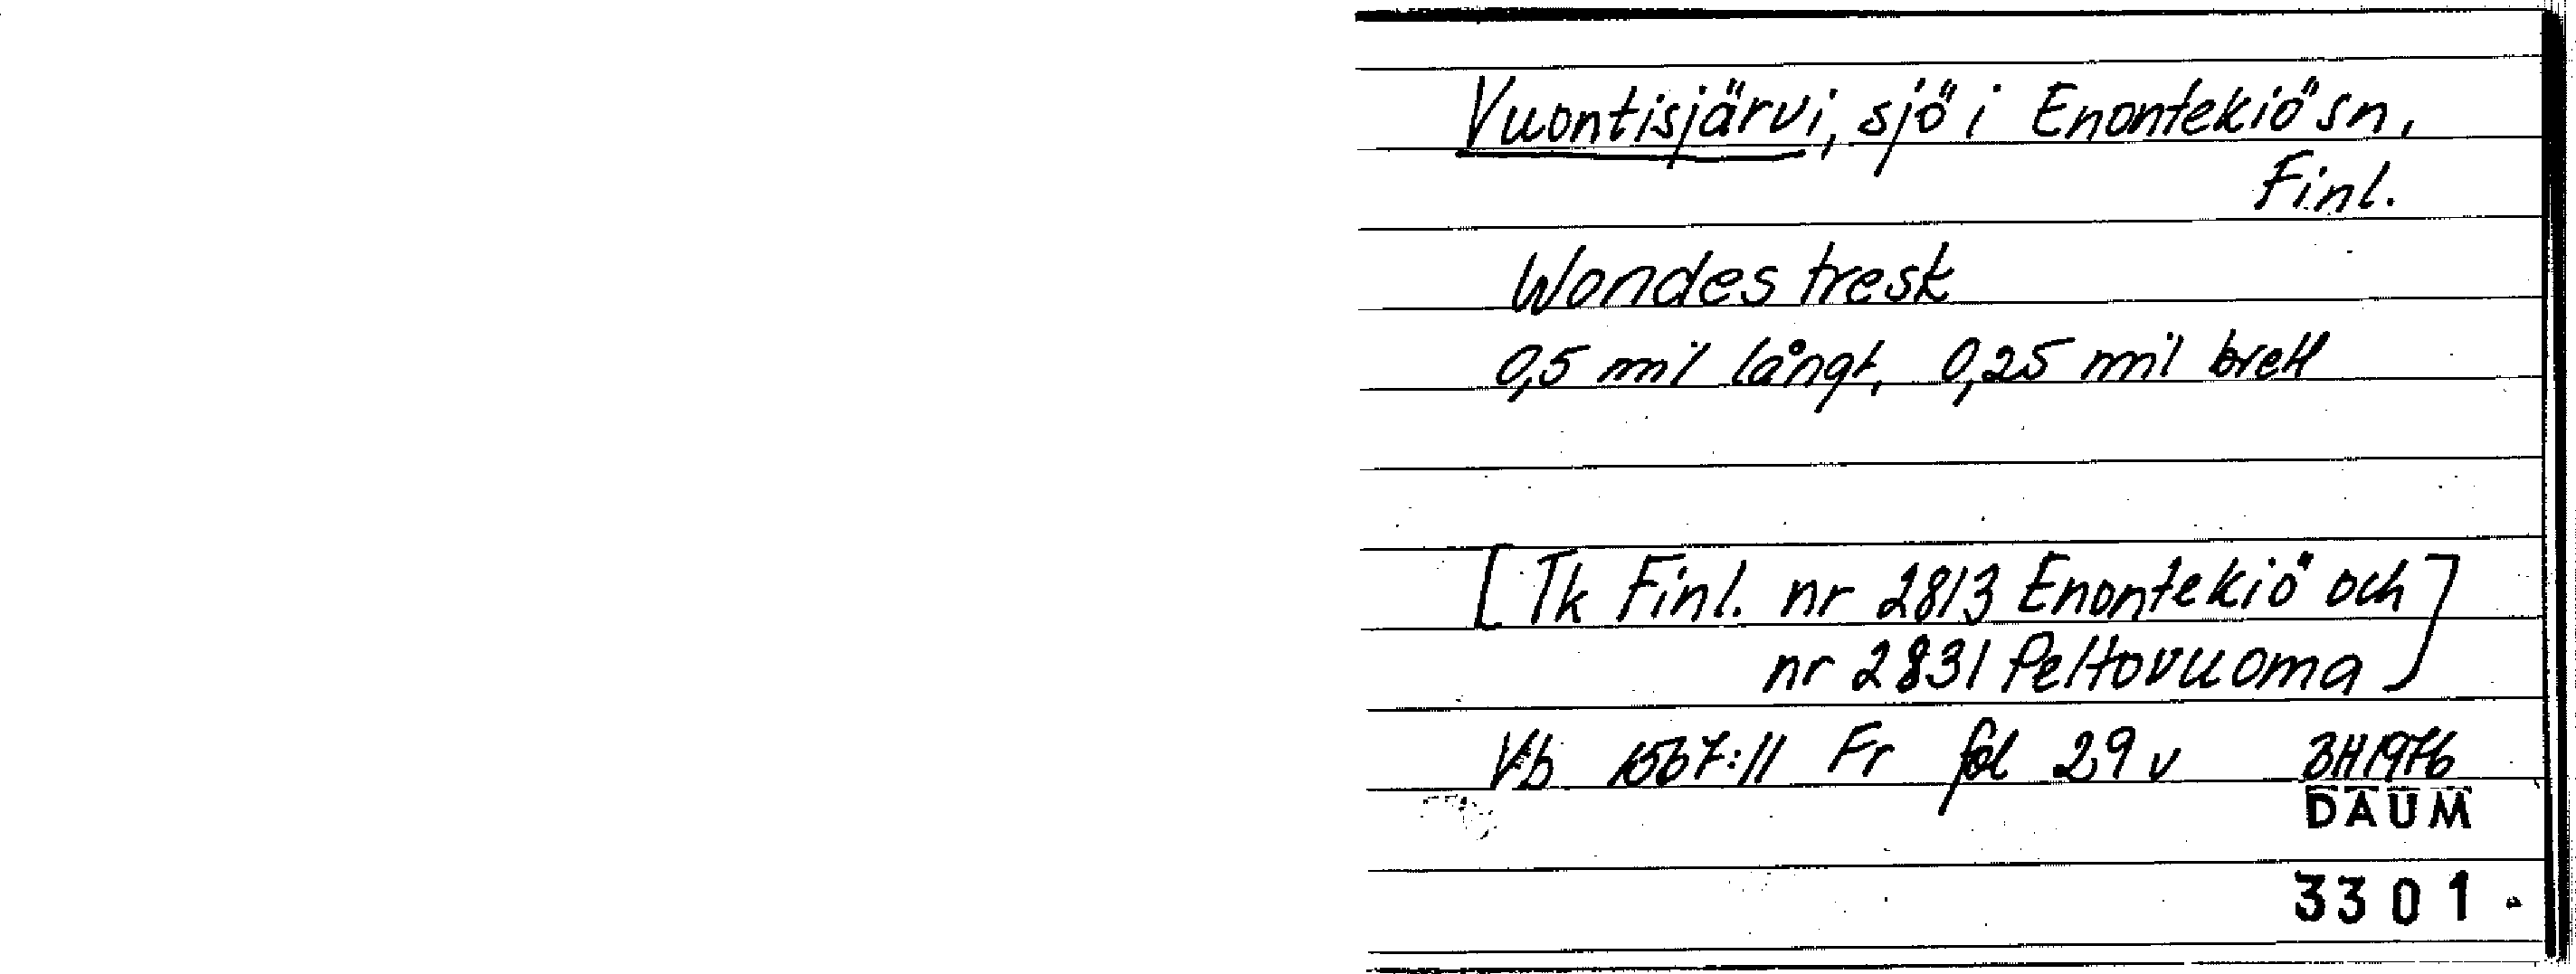 Vuontisjärvi, sjö i Enontekiö sn,
Finl.
Wondes tresk
0,5 mil långt, 0,25 mil brett
[Tk Finl. nr 2813 Enontekiö och
nr 2831 Peltovuoma]
Vb 1567:11 Fr fol 29 v BH 1976
DAUM
3301